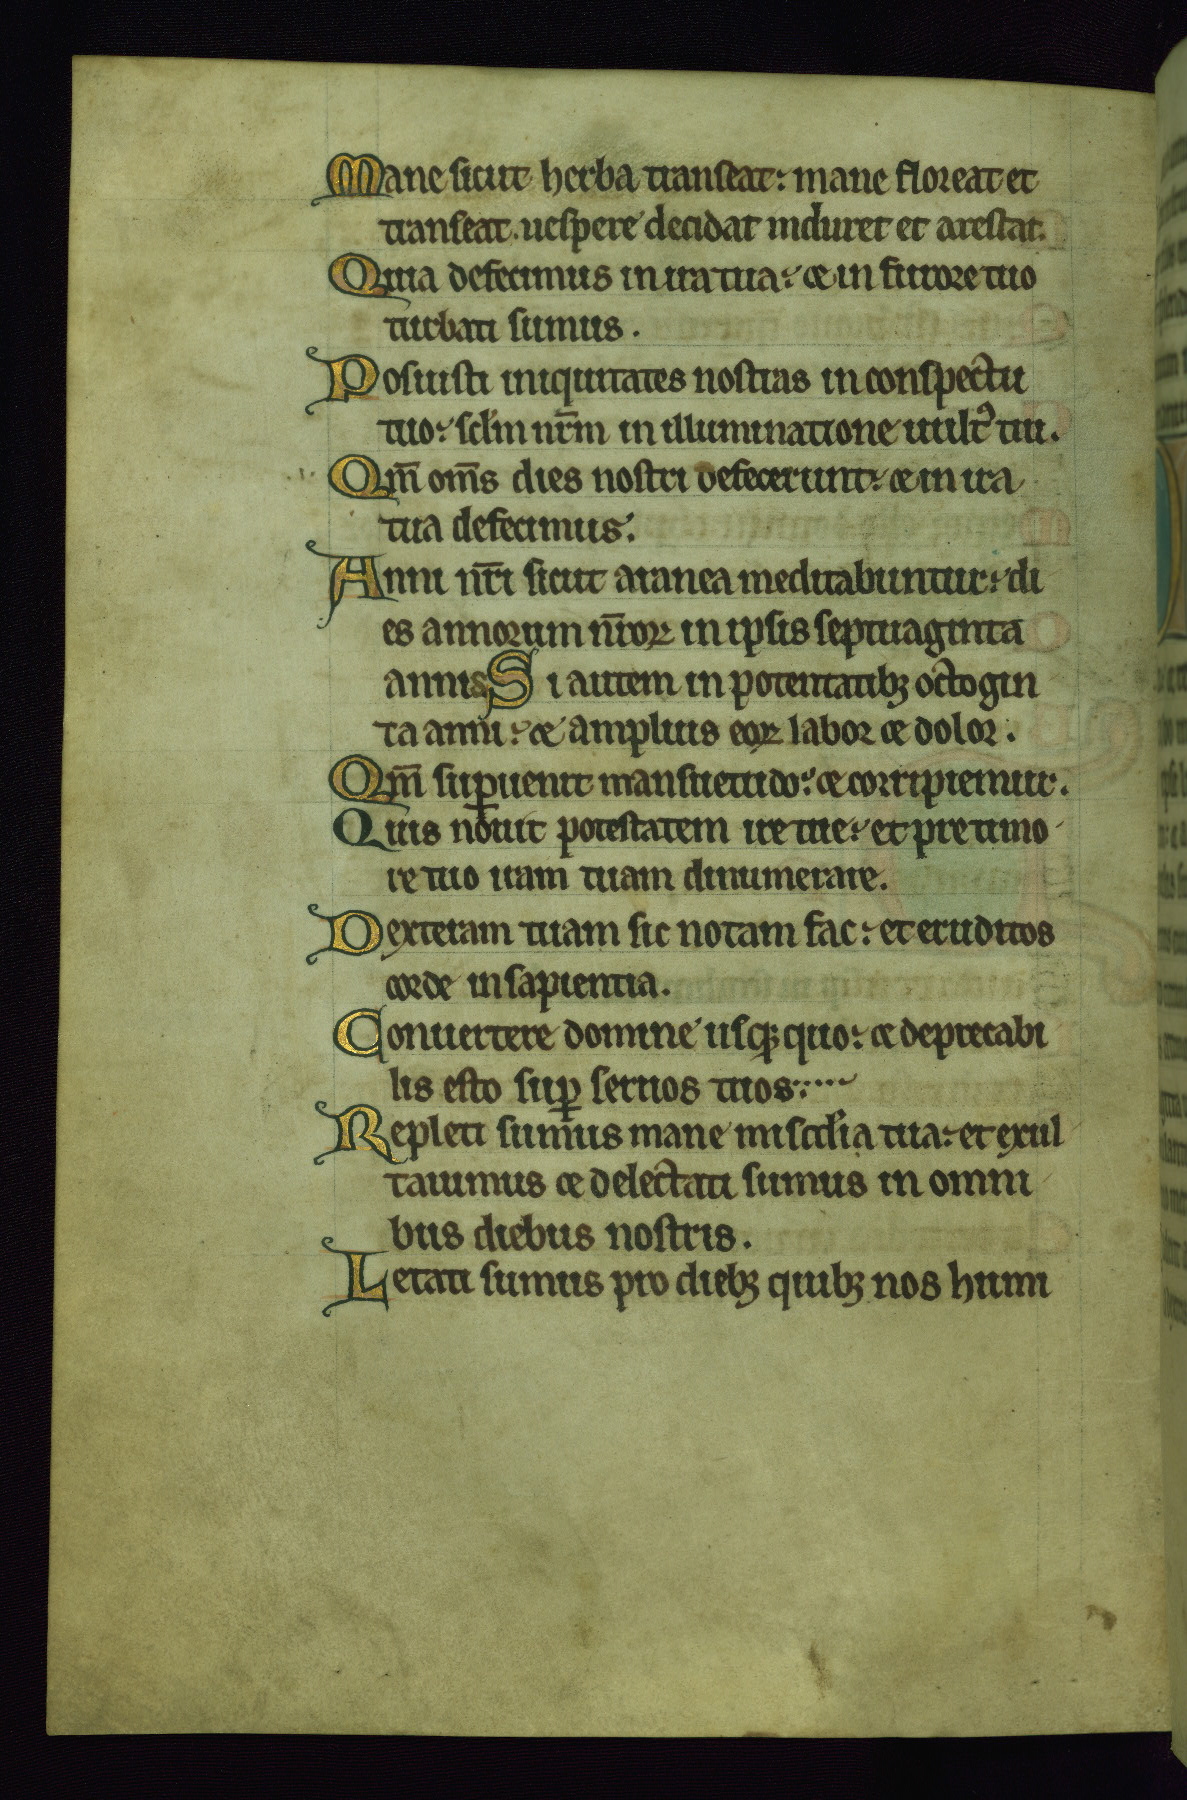 Mane sicut herba transeat: mane floreat et
transeat. uespere decidat induret et arescat.
Quia defecimus in ira tua: et in furore tuo
turbati sumus.
Posuisti iniquitates nostras in conspectu
tuo: sclm nr̄m in illuminatione uult᷒ tui.
Qm̄ om̄s dies nostri defecerunt: et in ira
tua defecimus.
Anni nr̄i sicut aranea meditabuntur: di
es annorum nr̄oꝝ in ipsis septuaginta
annis Si autem in potentatibꝫ octogin
ta anni: et amplius eoꝝ labor et dolor.
Qm̄ suꝑuenit mansuetudo: et corripiemur.
Quis nouit potestatem ire tue: et pre timo
re tuo iram tuam dinumerare.
Dexteram tuam sic notam fac: et eruditos
corde in sapientia.
Conuertere domine usqꝫ quo: et deprecabi
lis esto suꝑ seruos tuos:
Repleti sumus mane miscd̄ia tua: et exul
tauimus et delectati sumus in omni
bus diebus nostris.
Letati sumus pro diebꝫ quibꝫ nos humi